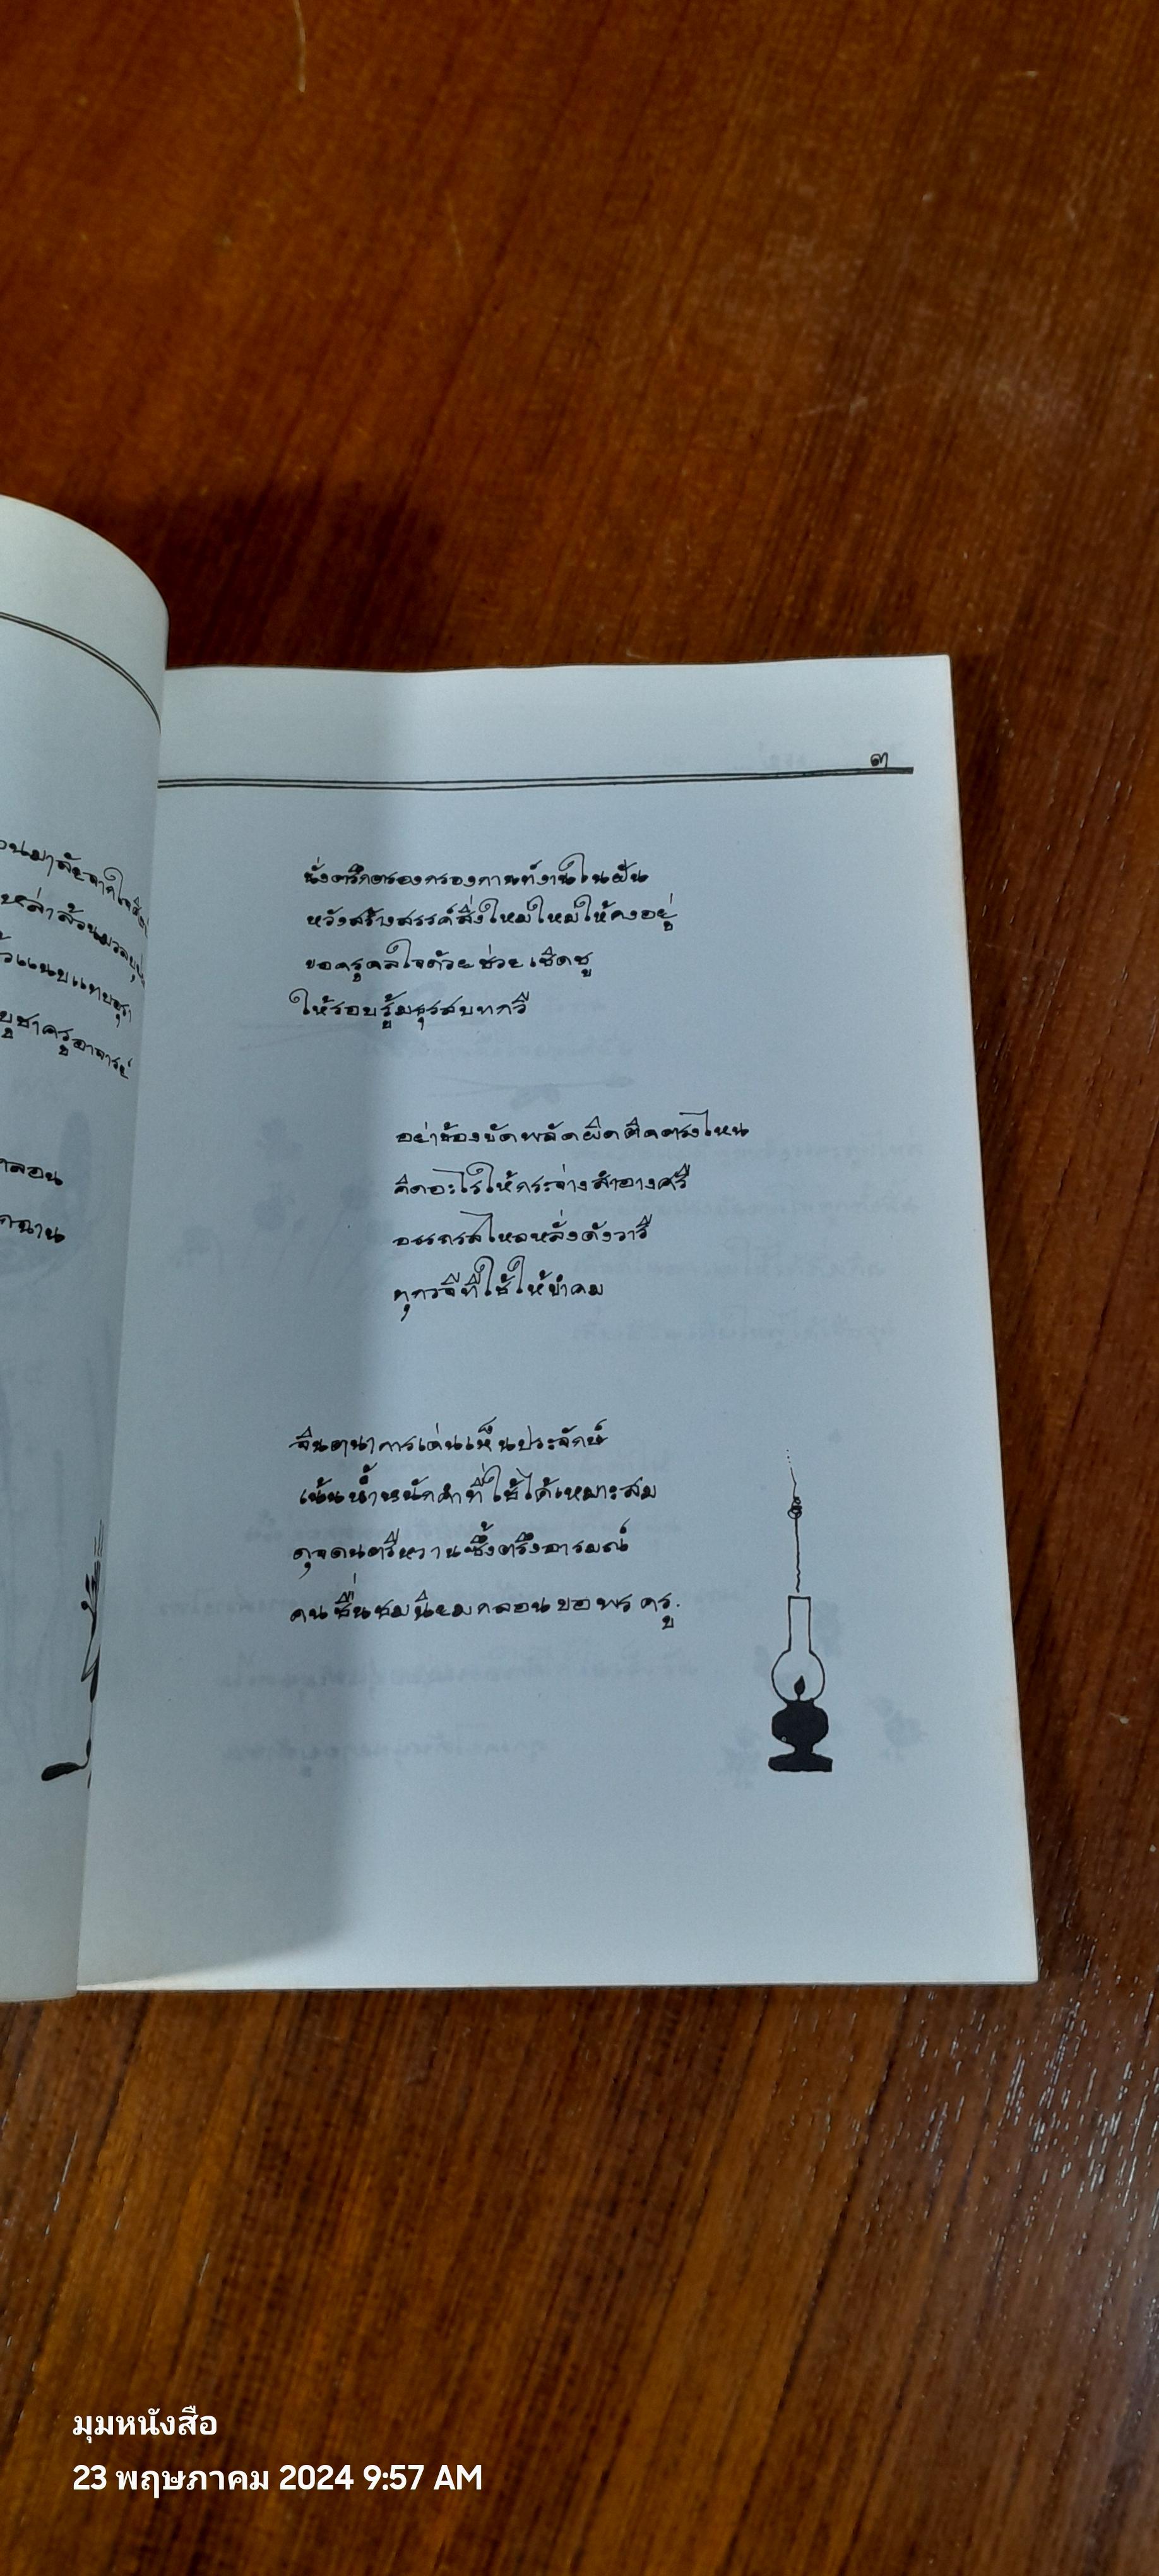 วนมาลัยจากใจ
หล่าล้วนมวล
แนบแทบอุรา
บูชาครูอาจารย์
กลอน
กฉาน
๓
นั่งตรึกตรองกรองกานท์งานในฝัน
หวังสร้างสรรค์สิ่งใหม่ใหม่ให้คงอยู่
ขอครูดลใจด้วยช่วยเชิดชู
ให้รอบรู้มธุรสบทกวี
อย่าข้องขัดพลัดผิดติดตรงไหน
คิดอะไรให้กระจ่างสำอางศรี
อรรถรสไหลหลั่งดังวารี
ทุกวจีที่ใช้ให้ขำคม
จินตนาการเด่นเห็นประจักษ์
เน้นน้ำหนักคำที่ใช้ได้เหมาะสม
ดุจดนตรีหวานซึ้งตรึงอารมณ์
คนชื่นชมนิยมกลอนขอพรครู.
มุมหนังสือ
23 พฤษภาคม 2024 9:57 AM